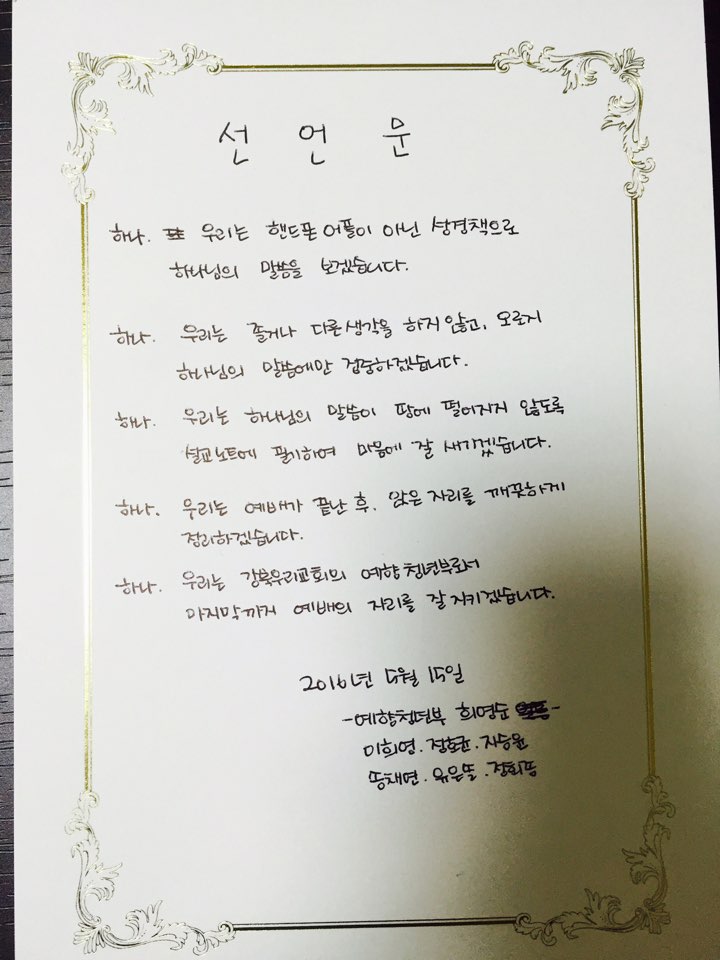 선 언 문
하나. 우리는 핸드폰 어플이 아닌 성경책으로
하나님의 말씀을 보겠습니다.
하나. 우리는 졸거나 다른 생각을 하지 않고, 오로지
하나님의 말씀에만 집중하겠습니다.
하나. 우리는 하나님의 말씀이 땅에 떨어지지 않도록
설교노트에 필기하여 마음에 잘 새기겠습니다.
하나. 우리는 예배가 끝난 후, 앉은 자리를 깨끗하게
정리하겠습니다.
하나. 우리는 강북우리교회의 예향 청년부로서
마지막까지 예배의 자리를 잘 지키겠습니다.
2016년 5월 15일
-예향청년부 희영순 -
이희영. 정호균. 지승윤
송채연. 유은뜰.